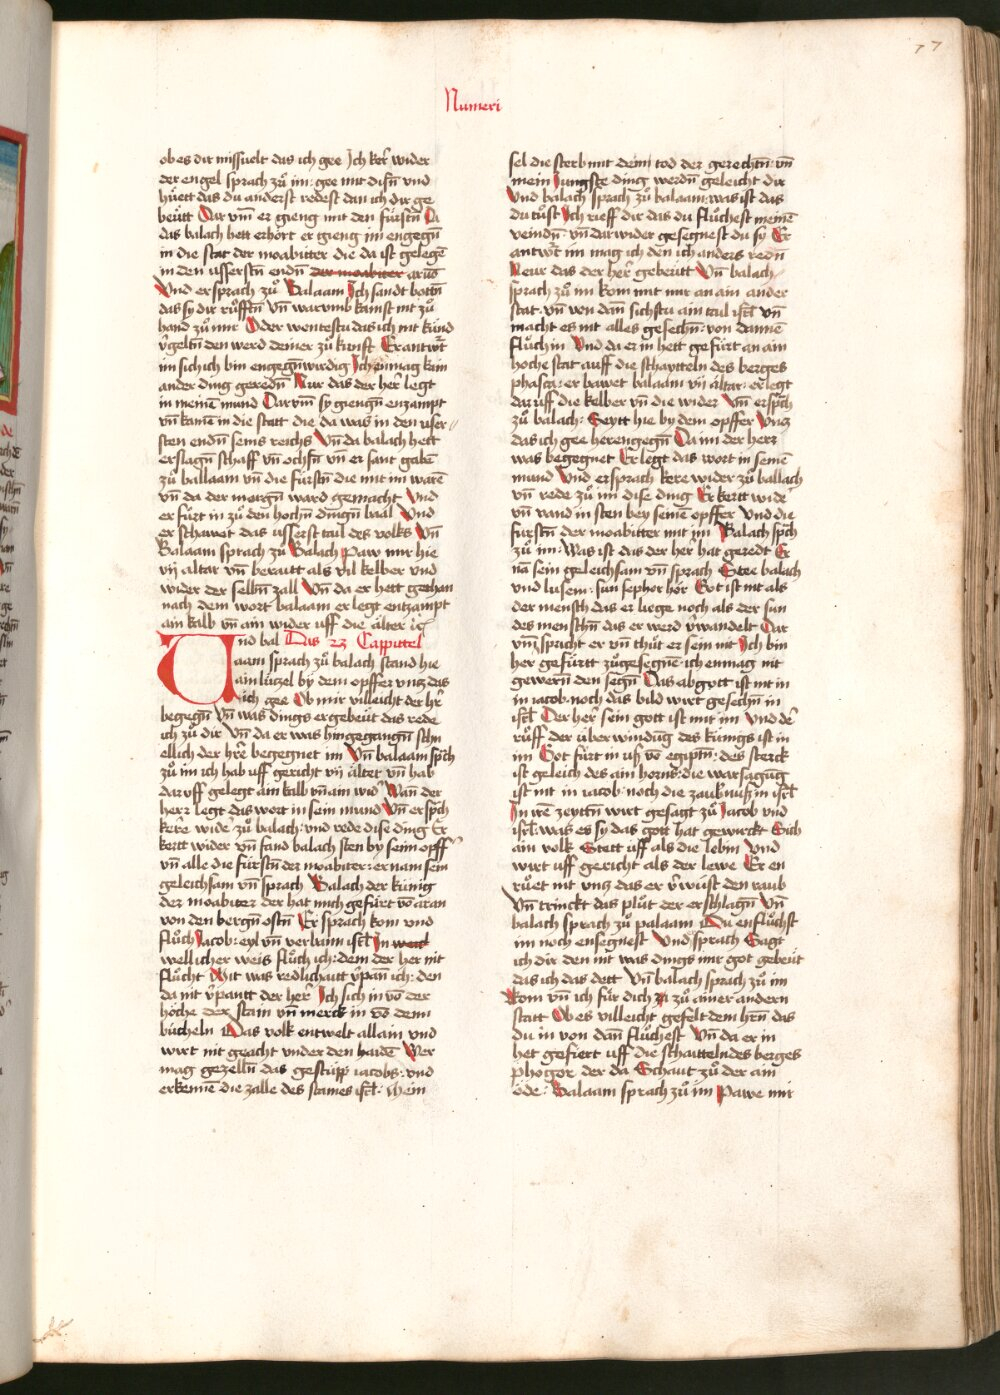 77
Numeri
ob es dir missuelt das ich gee Ich ker wider
der engel sprach zů im: gee mit disn̄ vnd
hüett das du anderst redest dan ich dir ge
beütt Dar vm̄ er gieng mit den fürstn̄ Da
das balach hett erhört er gieng im engegn̄
in die stat der moabitter die da ist gelegē
in den usserstn̄ endn̄ der moabiter arus
Vnd er sprach zů Balaam Ich sandt bottn̄
das sy dir rüfftn̄ vn̄ warumb kamst nit zů
hand zů mir Oder wentestu das ich nit künd
v̄geltn̄ den werd deiner zů kunft Er antwrt
im sich ich bin engegn̄wirdig Ich enmag kain
ander ding geredn̄ Nur das der her̄ legt
in meinē mund Darvm̄ sy giengn̄ enzampt
vn̄ kamē in die statt die da was in den user
sten endn̄ seins reichs Vn̄ da balach hett
erslagn̄ schaff vn̄ ochsn̄ vn̄ er sant gabē
zů ballaam vn̄ die fürstn̄ die mit im warē
vn̄ da der morgn̄ ward gemacht Vnd
er fürt in zů den hochn̄ dingn̄ baal Vnd
er schawet das usserst tail des volks Vn̄
Balaam sprach zů Balach Paw mir hie
vij altar vn̄ beraitt als vil kelber vnd
wider der selbn̄ zall Vn̄ da er hett gethan
nach dem wort balaam er legt entzampt
ain kalb vn̄ ain wider uff die älter
Und bal Das 23 Cappittel
aam sprach zů balach stand hie
ain lützel by dem opffer vntz das
ich gee Ob mir villeicht der her̄
begegn̄ Vn̄ was dings er gebeüt das rede
ich zů dir Vn̄ da er was hingegangn̄ schn
ellich der hre begegnet im Vn̄ balaam sp̄ch
zů im ich hab uff gericht vij älter vn̄ hab
dar uff gelegt ain kalb vn̄ ain wid' Wan̄ der
herz legt das wort in sein mund Vn̄ er sp̄ch
kere wide' zů balach: vnd rede dise ding Er
kertt wider vn̄ fand balach sten by seim opff'
vn̄ alle die fürstn̄ der moabiter: er nam sein
geleichsam vn̄ sprach Balach der künig
der moabiter der hat mich gefürt vō aran
von den bergn̄ ostn̄ Er sprach kom vnd
flůch Jacob: eyl vn̄ verbann isr̄l In
wellicher weis flůch ich: dem der her nit
flůcht Mit was redlichaitt v̄pan̄ ich: den
da nit v̄pantt der her̄ Ich sich in vō der
höche der stain vn̄ merck in vō denn
bücheln Das volk entwelt allain vnd
wirt nit geacht vnder den haidē Wer
mag gezelln̄ das gestüpp iacobs: vnd
erkennē die zalle des stames isr̄l: Mein
sel die sterb mit dem tod der gerechtn̄: vn̄
mein Jungste ding werdn̄ geleicht dir
Vnd balach sprach zů balaam: was ist das
du tůst Ich rieff dir das du flůchest meinē
veindn̄: vn̄ dar wider gesegnest du sy Er
antwrt im mag ich den ich anders redn̄
Neur das der her̄ gebeütt Vn̄ balach
sprach zů im kom mit mir an ain ander
stat: vn̄ von dan̄ sichstu ain tail isr̄l vn̄
macht es nit alles gesechn̄: von dannē
flůch in Vnd da er in hett gefürt an ain
hoche stat auff die schaytteln des berges
phasga: er bawet balaam vij altar: er legt
dar uff die kelber vn̄ die wider Vn̄ er sp̄ch
zů balach: Beytt hie by dem opffer Vntz
das ich gee herengegn̄ Da im der herz
was begegnet Er legt das wort in seinē
mund Vnd er sprach kere wider zů ballach
vn̄ rede zů im dise ding Er kertt wide'
vn̄ vand in sten bey seinē opffer Vnd die
fürstn̄ der moabitter mit im Balach sp̄ch
zů im: Was ist das der her hat geredt Er
nā sein geleichsam vn̄ sprach Stee balach
vnd lusem: sun sephor hör Got ist nit als
der mensch das er liege noch als der sun
des menschn̄ das er werd v̄wandelt Dar
vm̄ spracht er vn̄ thüt er sein nit Ich bin
her gefürtt zůgesegnē: ich enmag nit
gewern̄ den segn̄ Das abgott ist nit in
in iacob: noch das bild wirt gesechn̄ in
isr̄l Der her̄ sein gott ist mit im Vnd de'
růff der überwindūg des künigs ist in
im Got fürt in uß vō egiptn̄: des sterck
ist geleich des ain horns: die warsagūg
ist nit in iacob: noch die zaubnuß in isr̄l
In irē zeyttn̄ wirt gesagt zů Jacob vnd
isr̄l: was es sy das gott hat gewürckt Sich
ain volk Stett uff als die lebin Vnd
wirt uff gericht als der lewe Er en
růet nit vntz das er v̄wüst den raub
Vn̄ trinckt das plůt der erschlagn̄ Vn̄
balach sprach zů palaam Du enflůchst
im noch ensegnest Vnd sprach Sagt
ich dir den nit was dings mir got gebeüt
das ich das dett Vn̄ balach sprach zů im
Kom vn̄ ich für dich zů ainer andern
statt Ob es villeicht gefelt dem hern̄ das
du in von dan̄ flůchest Vn̄ da er in
het gefiert uff die schaitteln des berges
phogor der da Schaut zů der ain
öde: Balaam sprach zů im Pawe mir